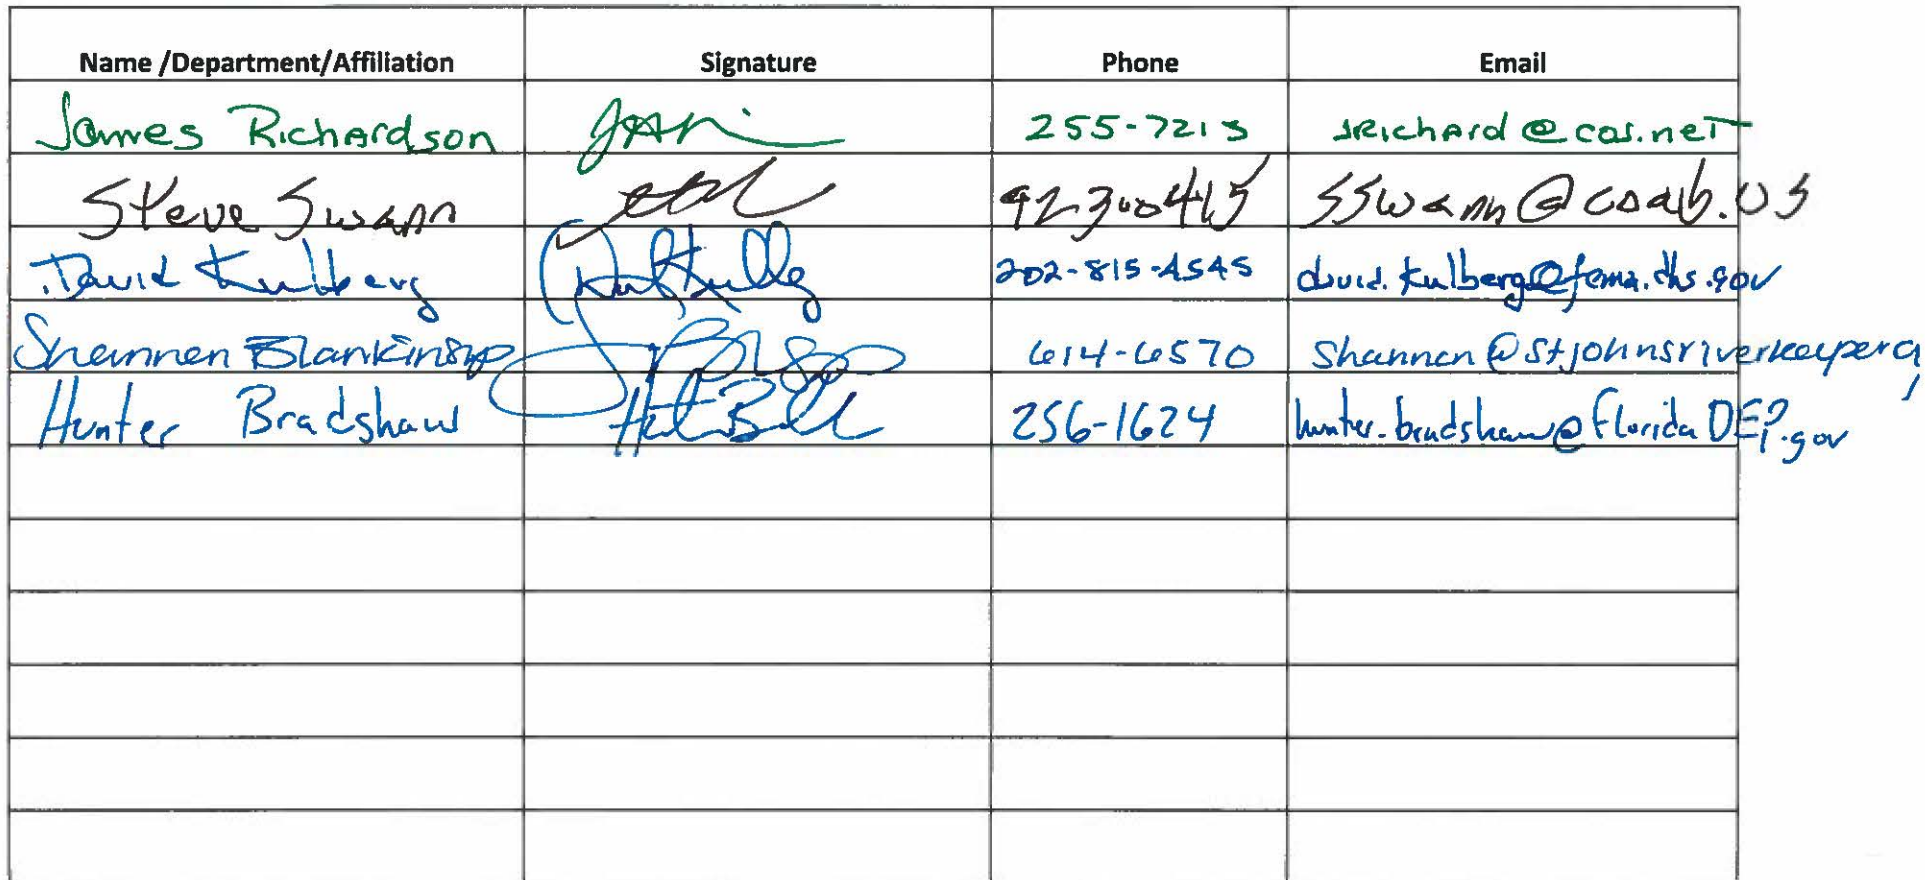 Name /Department/Affiliation Signature Phone Email
James Richardson 255-7213 JRichard@coj.net
Steve Swann SSwann@coab.us
David Kulberg 202-815-4545 david.kulberg@fema.dhs.gov
Shannon Blankinship 614-6570 shannon@stjohnsriverkeeper.org
Hunter Bradshaw 256-1624 hunter.bradshaw@FloridaDEP.gov